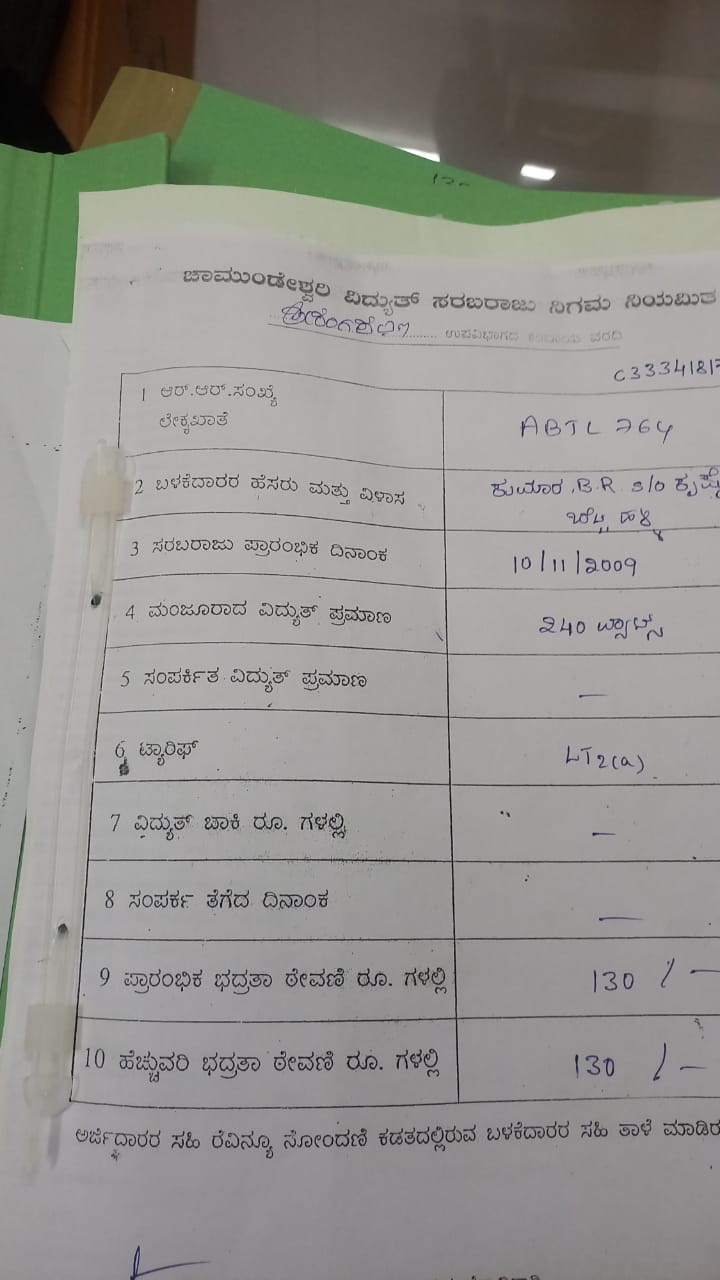 ಚಾಮುಂಡೇಶ್ವರಿ ವಿದ್ಯುತ್ ಸರಬರಾಜು ನಿಗಮ ನಿಯಮಿತ
........ ಉಪವಿಭಾಗದ ಕಂದಾಯ ವರದಿ
C3334181
1 ಆರ್.ಆರ್.ಸಂಖ್ಯೆ
ಲೆಕ್ಕಖಾತೆ
ABTL 764
2 ಬಳಕೆದಾರರ ಹೆಸರು ಮತ್ತು ವಿಳಾಸ
ಕುಮಾರ .B.R s/o
3 ಸರಬರಾಜು ಪ್ರಾರಂಭಿಕ ದಿನಾಂಕ
10/11/2009
4 ಮಂಜೂರಾದ ವಿದ್ಯುತ್ ಪ್ರಮಾಣ
240 ವ್ಯಾಟ್ಸ್
5 ಸಂಪರ್ಕಿತ ವಿದ್ಯುತ್ ಪ್ರಮಾಣ
—
6 ಟ್ಯಾರಿಫ್
LT2(a)
7 ವಿದ್ಯುತ್ ಬಾಕಿ ರೂ. ಗಳಲ್ಲಿ
—
8 ಸಂಪರ್ಕ ತೆಗೆದ ದಿನಾಂಕ
—
9 ಪ್ರಾರಂಭಿಕ ಭದ್ರತಾ ಠೇವಣಿ ರೂ. ಗಳಲ್ಲಿ
130 /—
10 ಹೆಚ್ಚುವರಿ ಭದ್ರತಾ ಠೇವಣಿ ರೂ. ಗಳಲ್ಲಿ
130 /—
ಅರ್ಜಿದಾರರ ಸಹಿ ರೆವಿನ್ಯೂ ನೋಂದಣಿ ಕಡತದಲ್ಲಿರುವ ಬಳಕೆದಾರರ ಸಹಿ ತಾಳೆ ಮಾಡಿರ